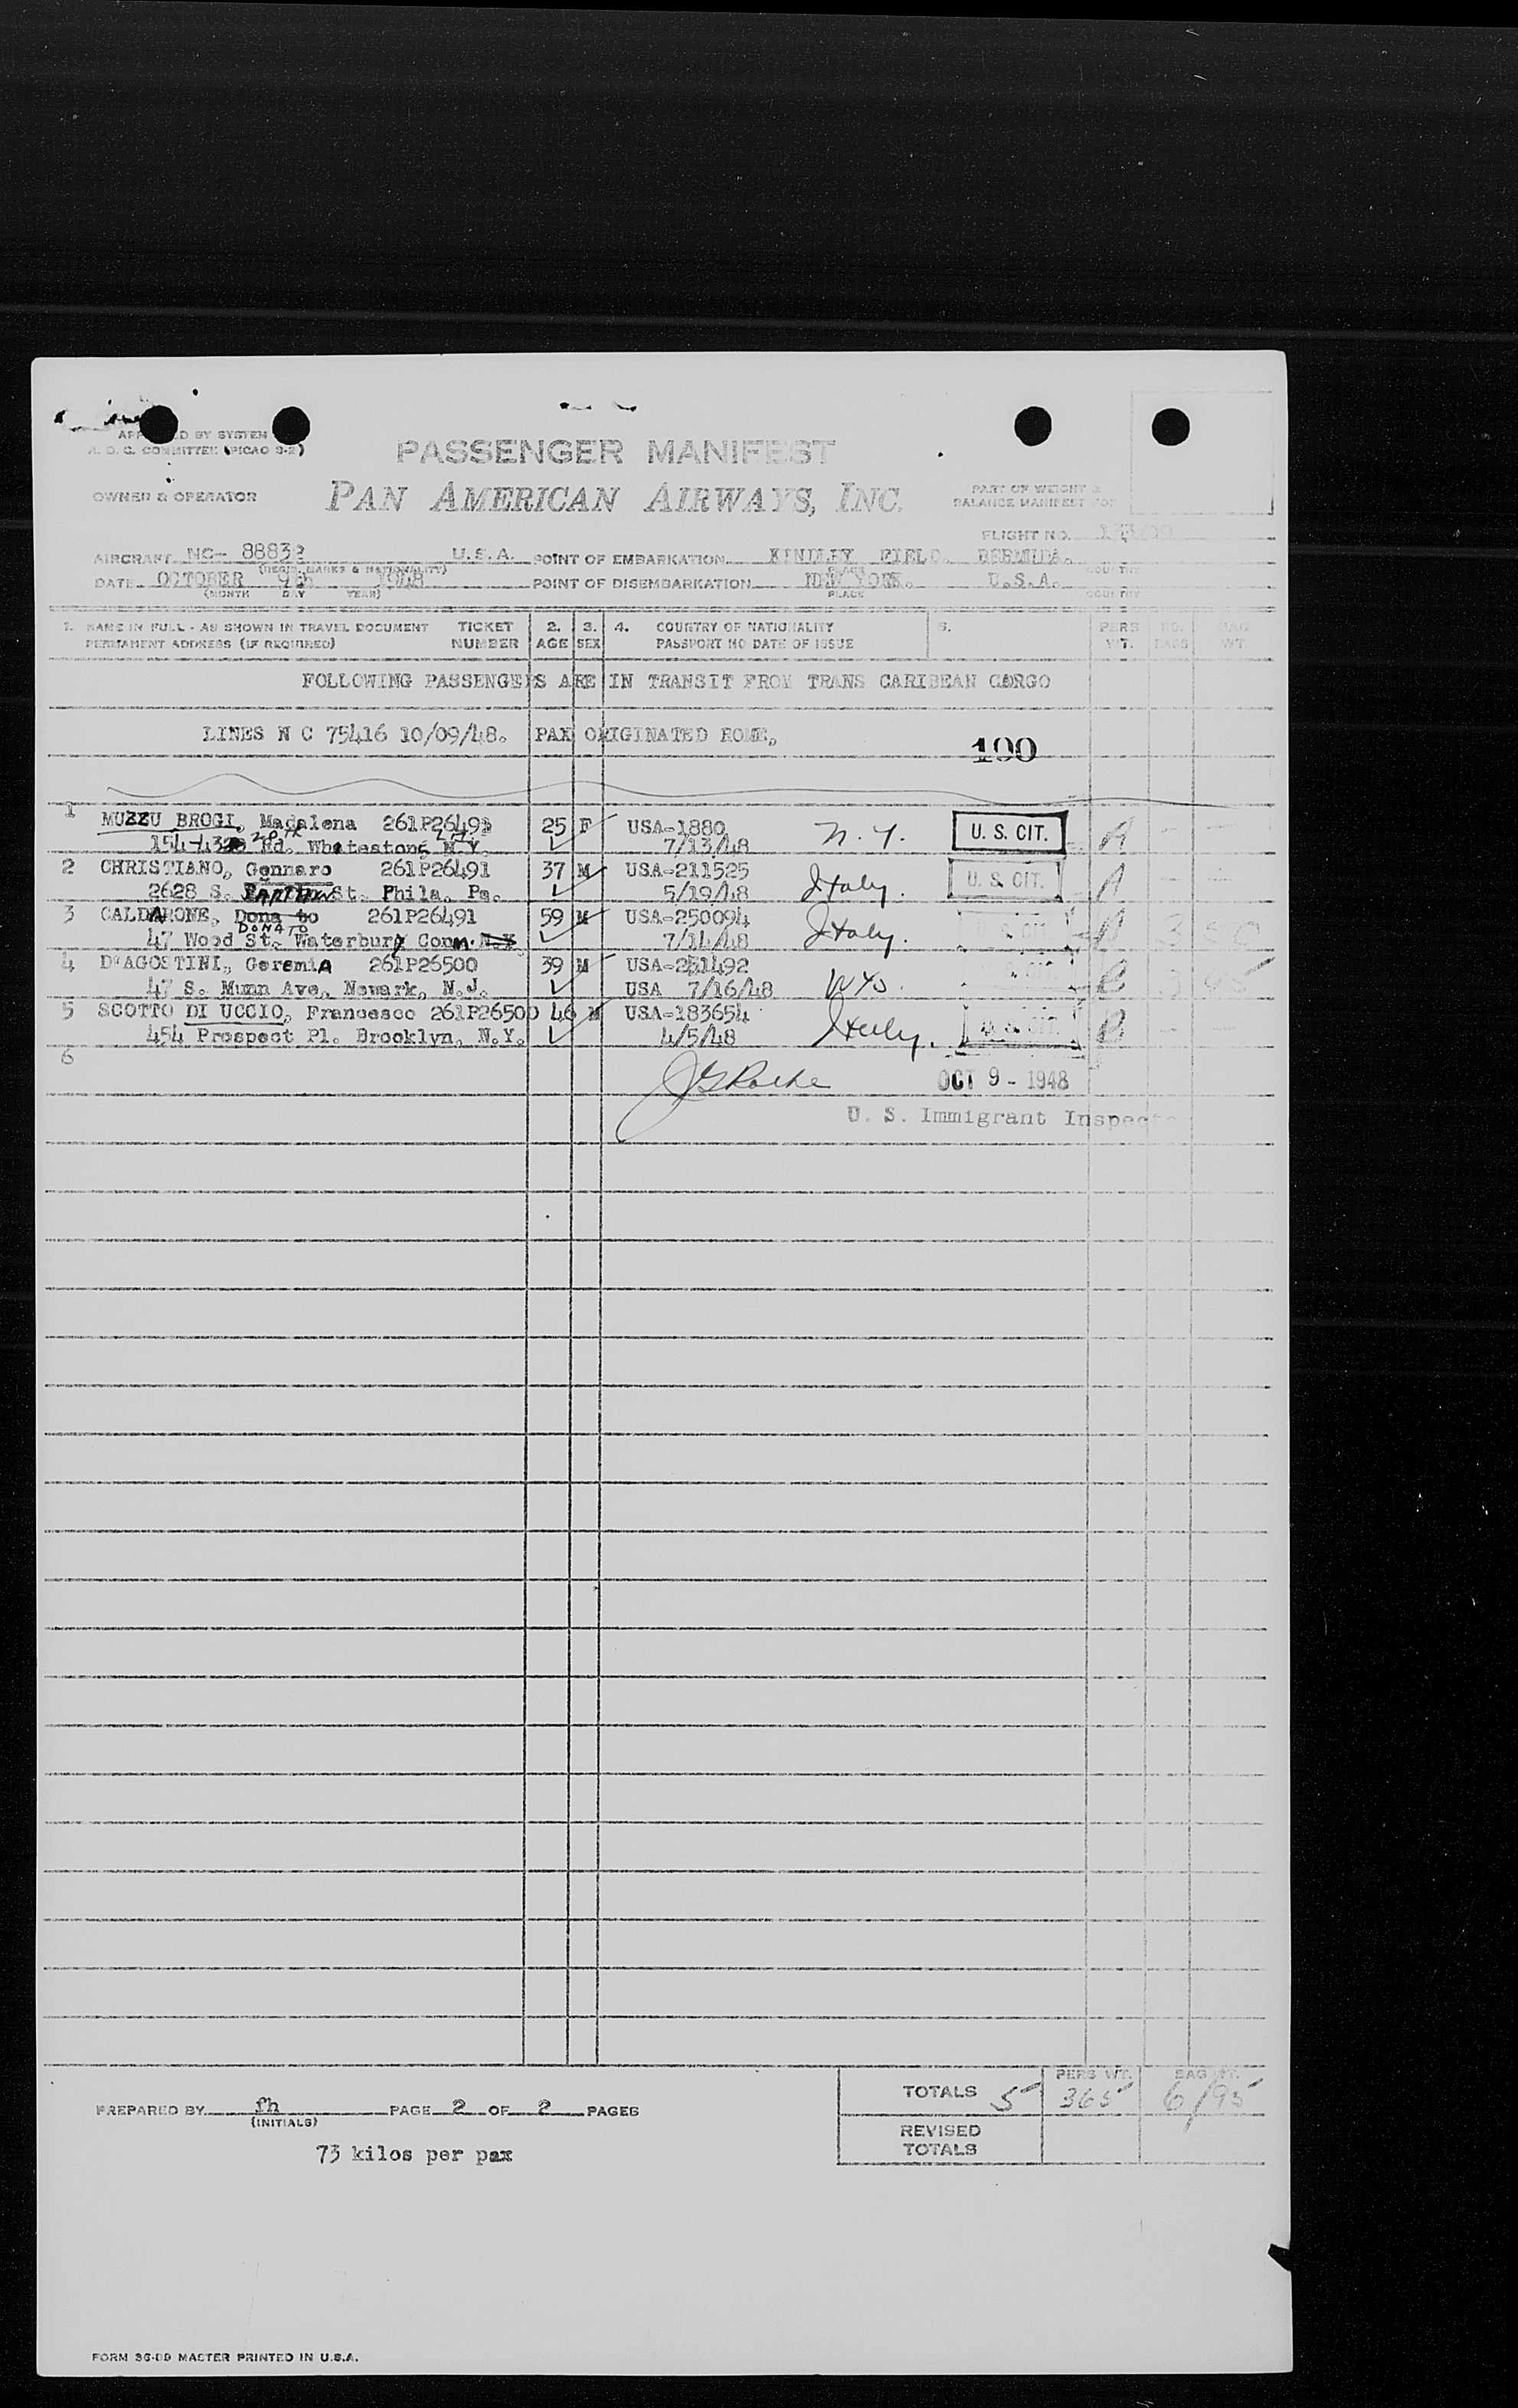 PASSENGER MANIFEST
A. O. C. COMMITTEE (PICAO 9-2)
OWNER & OPERATOR PAN AMERICAN AIRWAYS, INC.
PART OF WEIGHT &
BALANCE MANIFEST FOR
FLIGHT NO.
AIRCRAFT NC- 88832 U.S.A. POINT OF EMBARKATION KINDLEY FIELD. BERMUDA.
(REGIS. MARKS & NATIONALITY) PLACE COUNTRY
DATE OCTOBER 9th 1948 POINT OF DISEMBARKATION NEW YORK. U.S.A.
(MONTH DAY YEAR) PLACE COUNTRY
1. NAME IN FULL - AS SHOWN IN TRAVEL DOCUMENT TICKET 2. 3. 4. COUNTRY OF NATIONALITY 5. PERS NO. BAG
PERMANENT ADDRESS (IF REQUIRED) NUMBER AGE SEX PASSPORT NO DATE OF ISSUE WT. BAGS WT.
FOLLOWING PASSENGERS ARE IN TRANSIT FROM TRANS CARIBEAN CARGO
LINES N C 75416 10/09/48. PAX ORIGINATED ROME,
190
1 MUZZU BROGI, Madalena 25 F USA-1880 N.Y. U. S. CIT. A
Rd. Whitestone N.Y. 7/13/48
2 CHRISTIANO, Gennaro 261P26491 37 M USA-211525 Italy. U. S. CIT. A
2628 S. St. Phila. Pa. 5/19/48
3 CALDARONE, Dona to 261P26491 59 M USA-250094 Italy. U. S. CIT.
DONATO
47 Wood St. Waterbury Conn. N.Y 7/14/48
4 D'AGOSTINI, GeremiA 261P26500 39 M USA-251492 WYO. B
47 S. Munn Ave, Newark, N.J. USA 7/16/48
5 SCOTTO DI UCCIO, Francesco 261P26500 46 M USA-183654 Italy. U. S. CIT. B
454 Prospect Pl. Brooklyn, N.Y. 4/5/48
6
OCT 9 - 1948
U. S. Immigrant Inspector
TOTALS 5 PERS WT. 365 BAG WT. 6/95
PREPARED BY fh PAGE 2 OF 2 PAGES
(INITIALS)
REVISED
TOTALS
73 kilos per pax
FORM 36-09 MASTER PRINTED IN U.S.A.